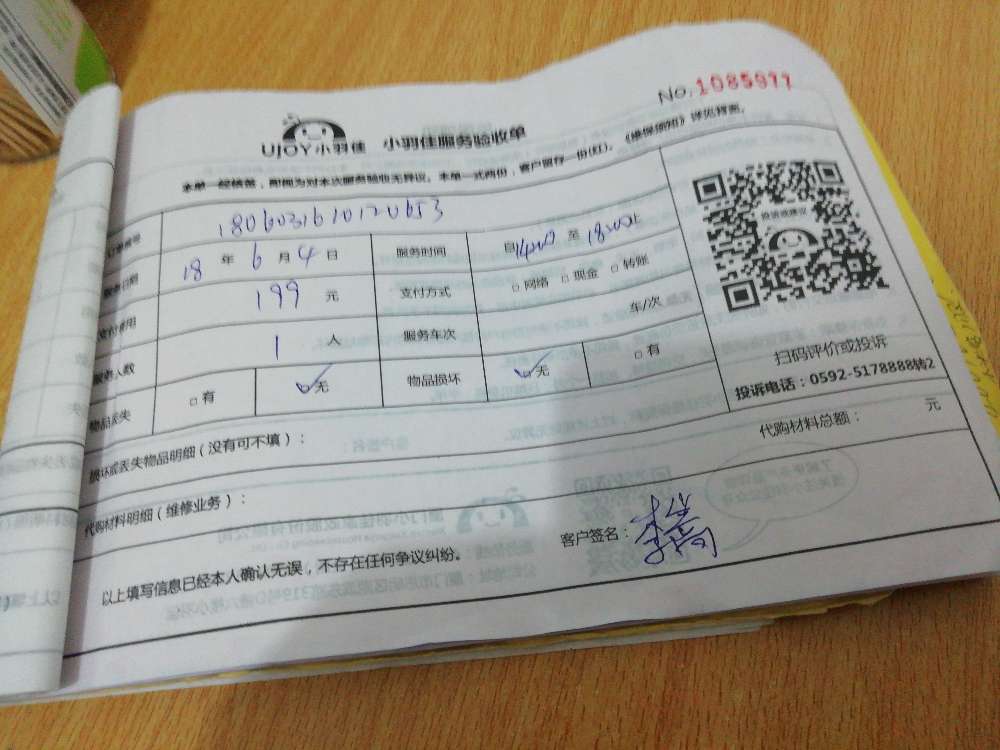 No.1085977
UJOY小羽佳 小羽佳服务验收单
本单一经签署，即视为对本次服务验收无异议。本单一式两份，客户留存一份(红)。《维保须知》详见背面。
订单编号 1806031610120653
服务日期 18 年 6 月 4 日 服务时间 自14:00 至 18:00止
支付费用 199 元 支付方式 □网络 □现金 □转账
服务人数 1 人 服务车次 车/次
物品丢失 □有 □无 物品损坏 □无 □有
扫码评价或投诉
投诉电话：0592-5178888转2
损坏或丢失物品明细（没有可不填）：
代购材料明细（维修业务）： 代购材料总额： 元
以上填写信息已经本人确认无误，不存在任何争议纠纷。 客户签名：